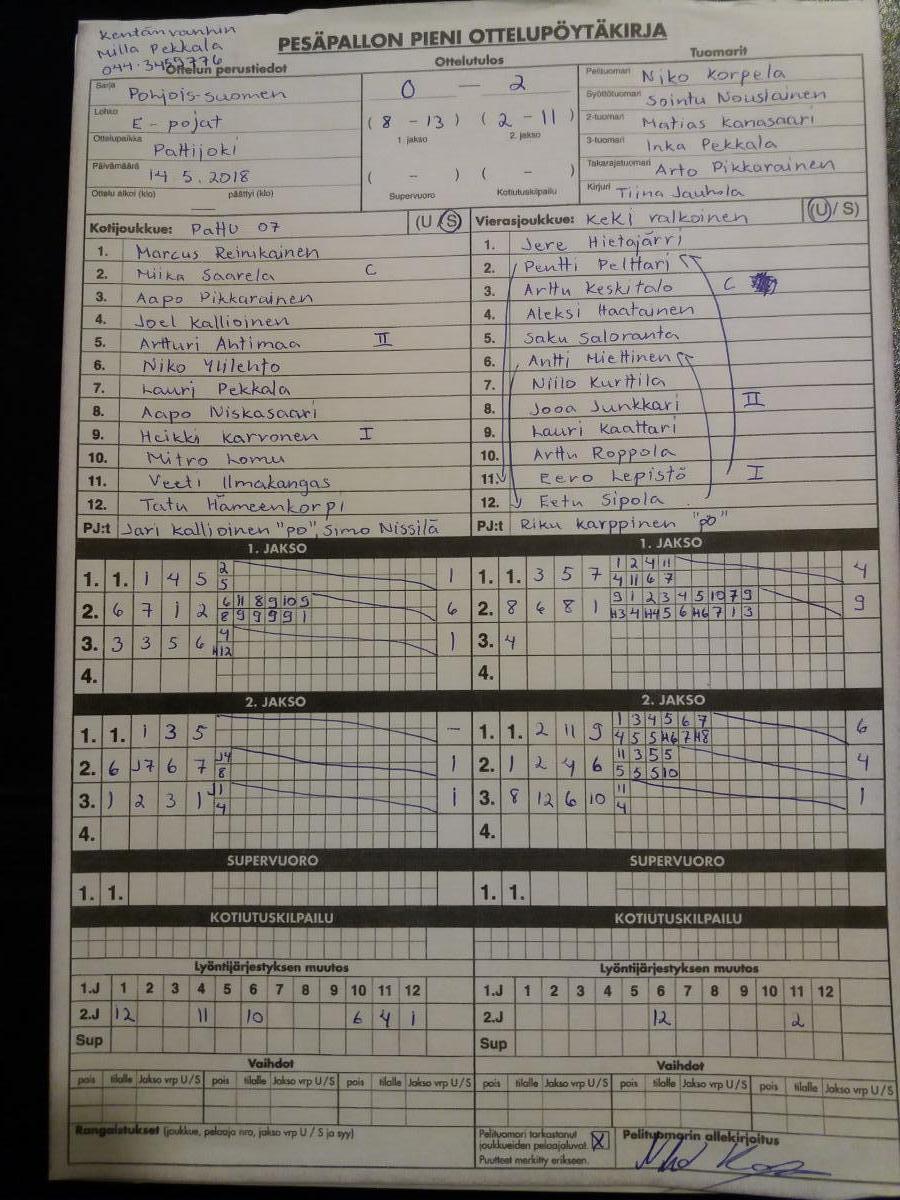 Kentänvanhin
Milla Pekkala
PESÄPALLON PIENI OTTELUPÖYTÄKIRJA
Ottelun perustiedot
Sarja Pohjois-suomen
Lohko E-pojat
Ottelupaikka Pattijoki
Päivämäärä 14 5. 2018
Ottelu alkoi (klo) päättyi (klo)
Ottelutulos
0 — 2
(8 - 13) (2 - 11)
1. jakso 2. jakso
( - ) ( - )
Supervuoro Kotiutuskilpailu
Tuomarit
Pelituomari Niko Korpela
Syöttötuomari Sointu Nousiainen
2-tuomari Matias Kanasaari
3-tuomari Inka Pekkala
Takarajatuomari Arto Pikkarainen
Kirjuri Tiina Jauhola
Kotijoukkue: PattU 07 (U/S)
1. Marcus Reinikainen
2. Miika Saarela C
3. Aapo Pikkarainen
4. Joel Kallioinen
5. Artturi Ahtimaa II
6. Niko Ylilehto
7. Lauri Pekkala
8. Aapo Niskasaari
9. Heikki Karvonen I
10. Mitro Lomu
11. Veeti Ilmakangas
12. Tatu Hämeenkorpi
PJ:t Jari Kallioinen "po", Simo Nissilä
Vierasjoukkue: Keki valkoinen (U/S)
1. Jere Hietajärvi
2. Pentti Pelttari
3. Arttu Keskitalo C
4. Aleksi Haatainen
5. Saku Saloranta
6. Antti Miettinen
7. Niilo Kurttila
8. Jooa Junkkari II
9. Lauri Kaattari
10. Arttu Roppola
11. Eero Lepistö I
12. Eetu Sipola
PJ:t Riku Karppinen "pö"
1. JAKSO
1. 1. 1 4 5 2 1
5
2. 6 7 1 2 6 11 8 9 10 9 6
8 9 9 9 9 1
3. 3 3 5 6 4 1
H12
4.
1. JAKSO
1. 1. 3 5 7 1 2 4 11 4
4 11 6 7
2. 8 6 8 1 9 1 2 3 4 5 10 7 9 9
H3 4 H4 5 6 H6 7 1 3
3. 4
4.
2. JAKSO
1. 1. 1 3 5 -
2. 6 J7 6 7 J4 1
8
3. 1 2 3 1 J1 1
4
4.
2. JAKSO
1. 1. 2 11 9 1 3 4 5 6 7 6
4 5 5 H6 7 H8
2. 1 2 4 6 11 3 5 5 4
5 5 5 10
3. 8 12 6 10 11 1
4
4.
SUPERVUORO
1. 1.
SUPERVUORO
1. 1.
KOTIUTUSKILPAILU
KOTIUTUSKILPAILU
Lyöntijärjestyksen muutos
1.J 1 2 3 4 5 6 7 8 9 10 11 12
2.J 12 11 10 6 4 1
Sup
Lyöntijärjestyksen muutos
1.J 1 2 3 4 5 6 7 8 9 10 11 12
2.J 12 2
Sup
Vaihdot
pois tilalle Jakso vrp U/S pois tilalle Jakso vrp U/S pois tilalle Jakso vrp U/S
Vaihdot
pois tilalle Jakso vrp U/S pois tilalle Jakso vrp U/S pois tilalle Jakso vrp U/S
Rangaistukset (joukkue, pelaaja nro, jakso vrp U / S ja syy)
Pelituomari tarkastanut
joukkueiden pelaajaluvat. X
Puutteet merkitty erikseen.
Pelituomarin allekirjoitus